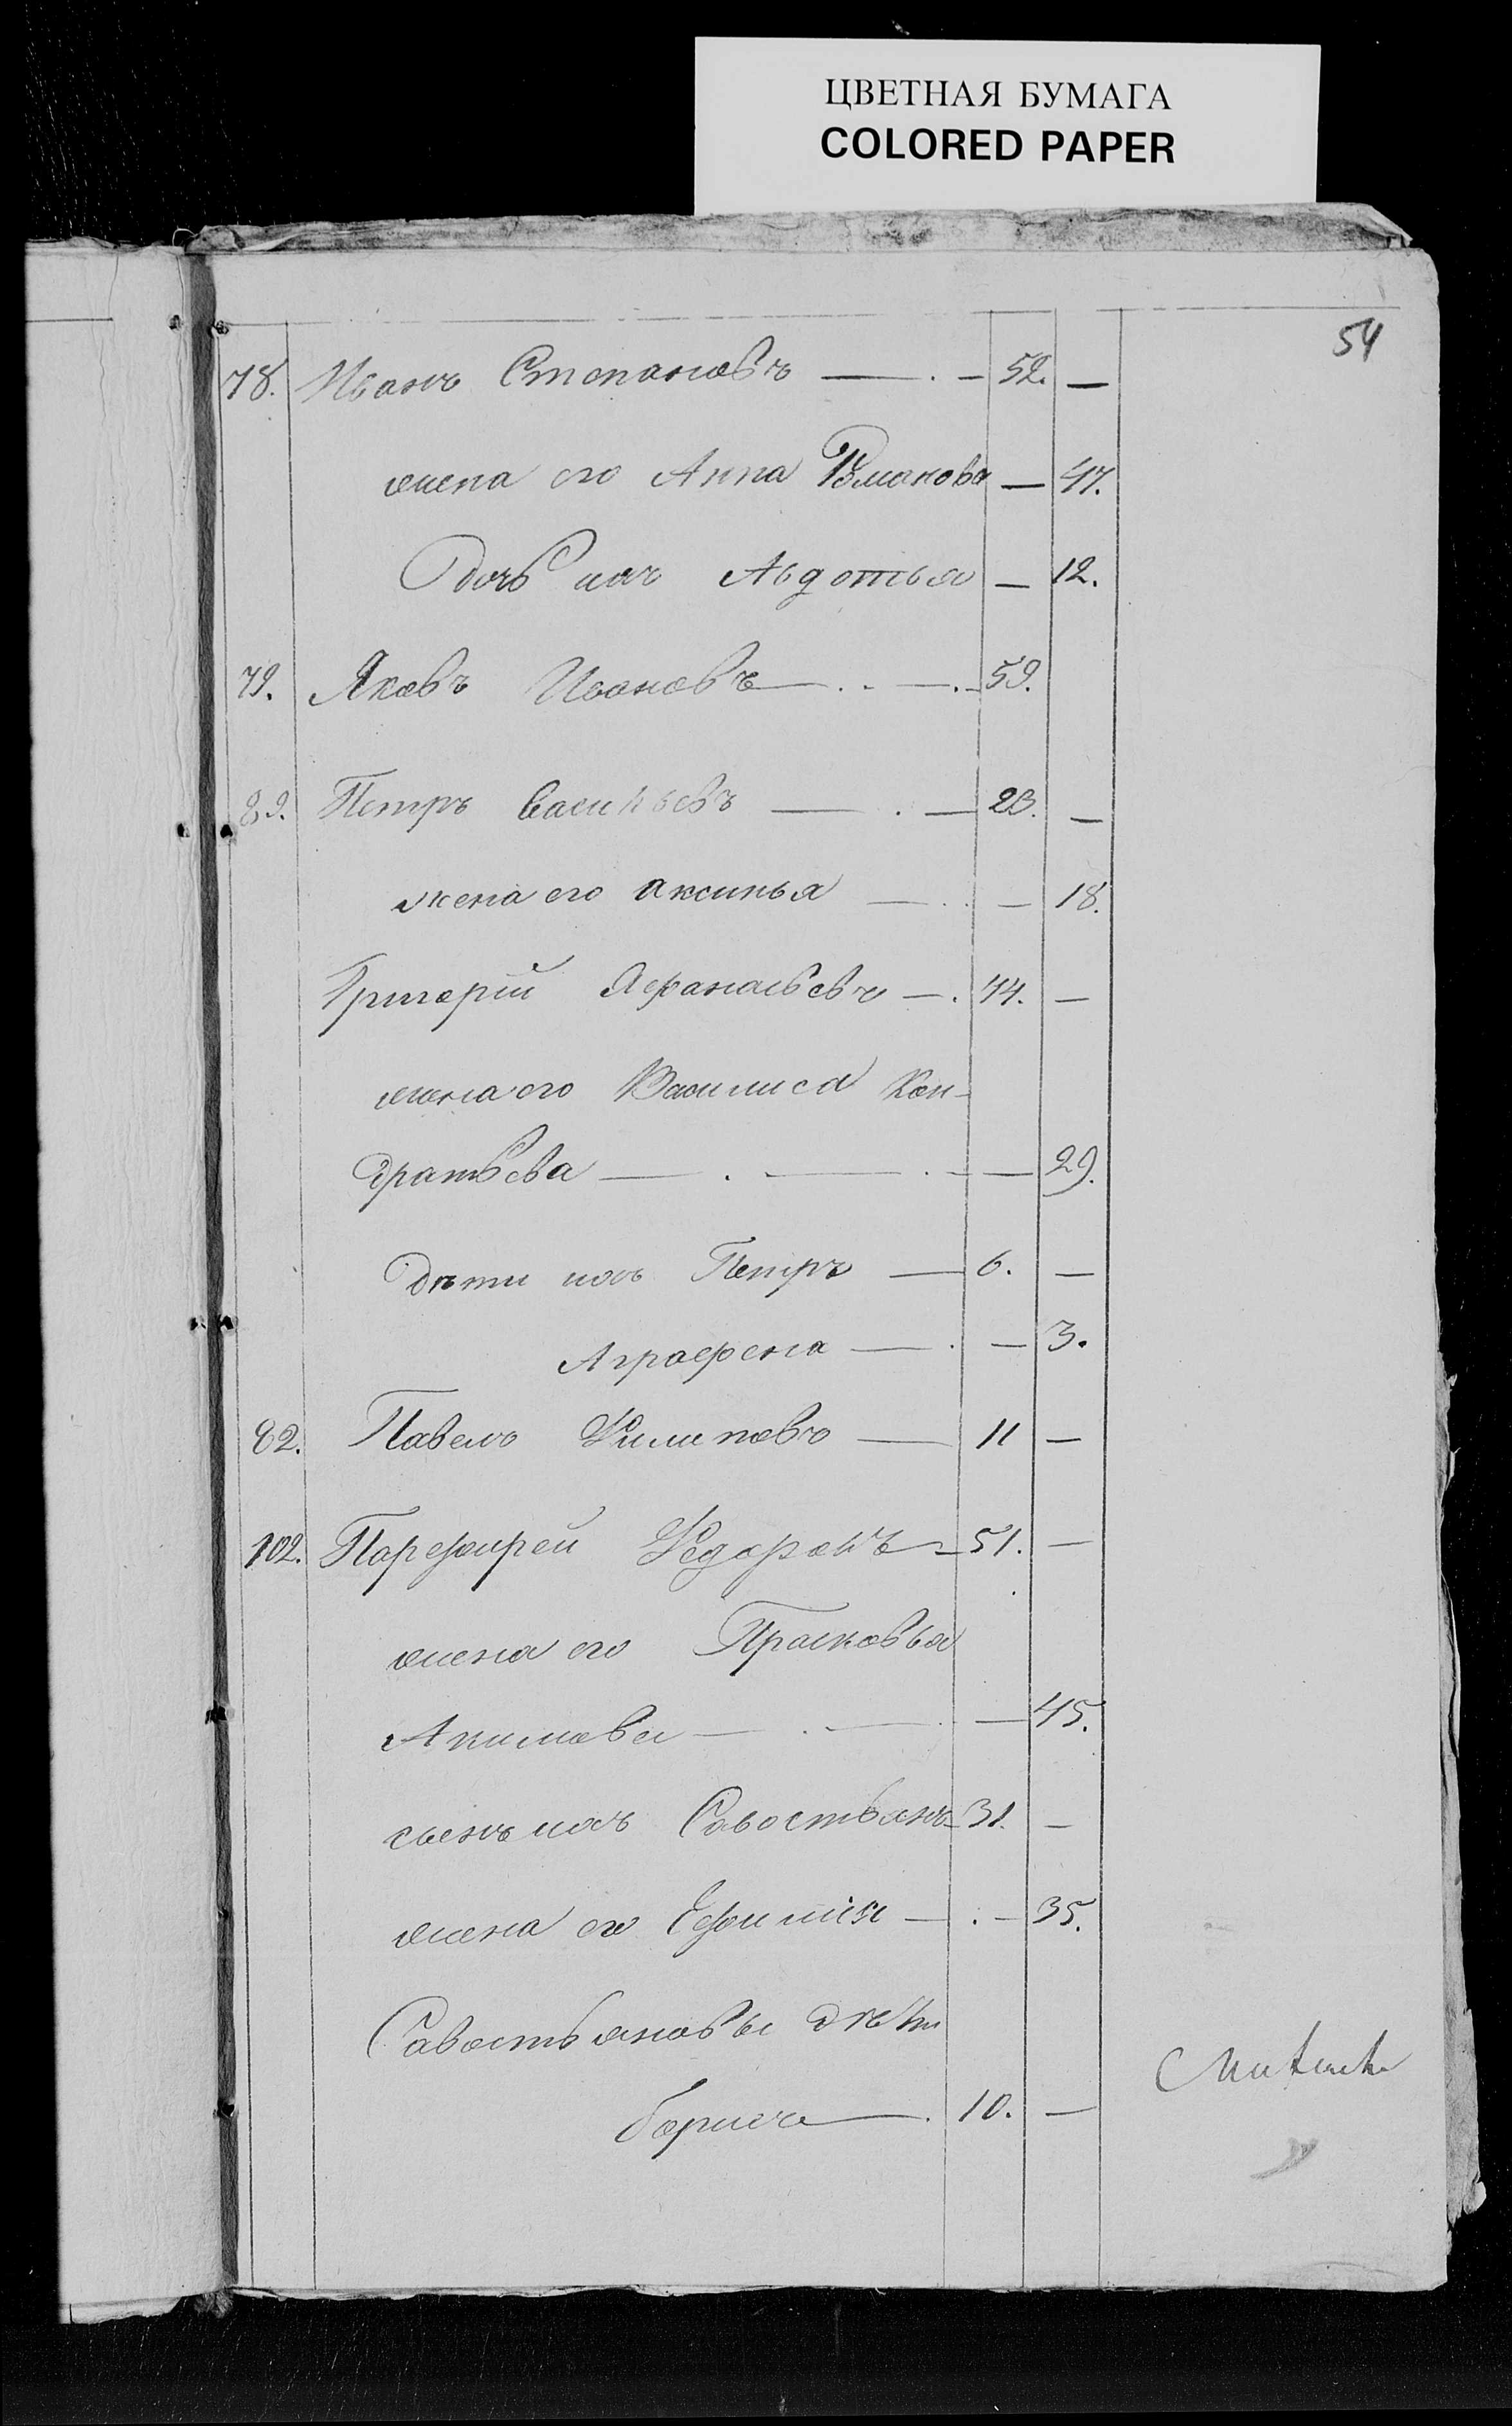 ЦВЕТНАЯ БУМАГА
COLORED PAPER
54
78. Иванъ Степановъ — . — 52. —
жена его Анна Романова — 47.
Дочь ихъ Авдотья — 12.
79. Яковъ Ивановъ — . . — . — 59.
89. Петръ Васильевъ — . — 23. —
жена его Аксинья — . — 18.
Григорій Афанасьевъ — . 44. —
жена его Василиса Кон-
дратьева — . — . — — 29.
Дѣти ихъ Петръ — 6. —
Аграфена — . — 3.
82. Павелъ Филиповъ — 11 —
102. Парфирей Федоровъ — 51. —
жена его Прасковья
Акимова — . — . — 45.
сынъ ихъ Савостьянъ 31. —
жена его Ефимія — . — 35.
Савостьяновы дѣти
Борисъ — . 10. —